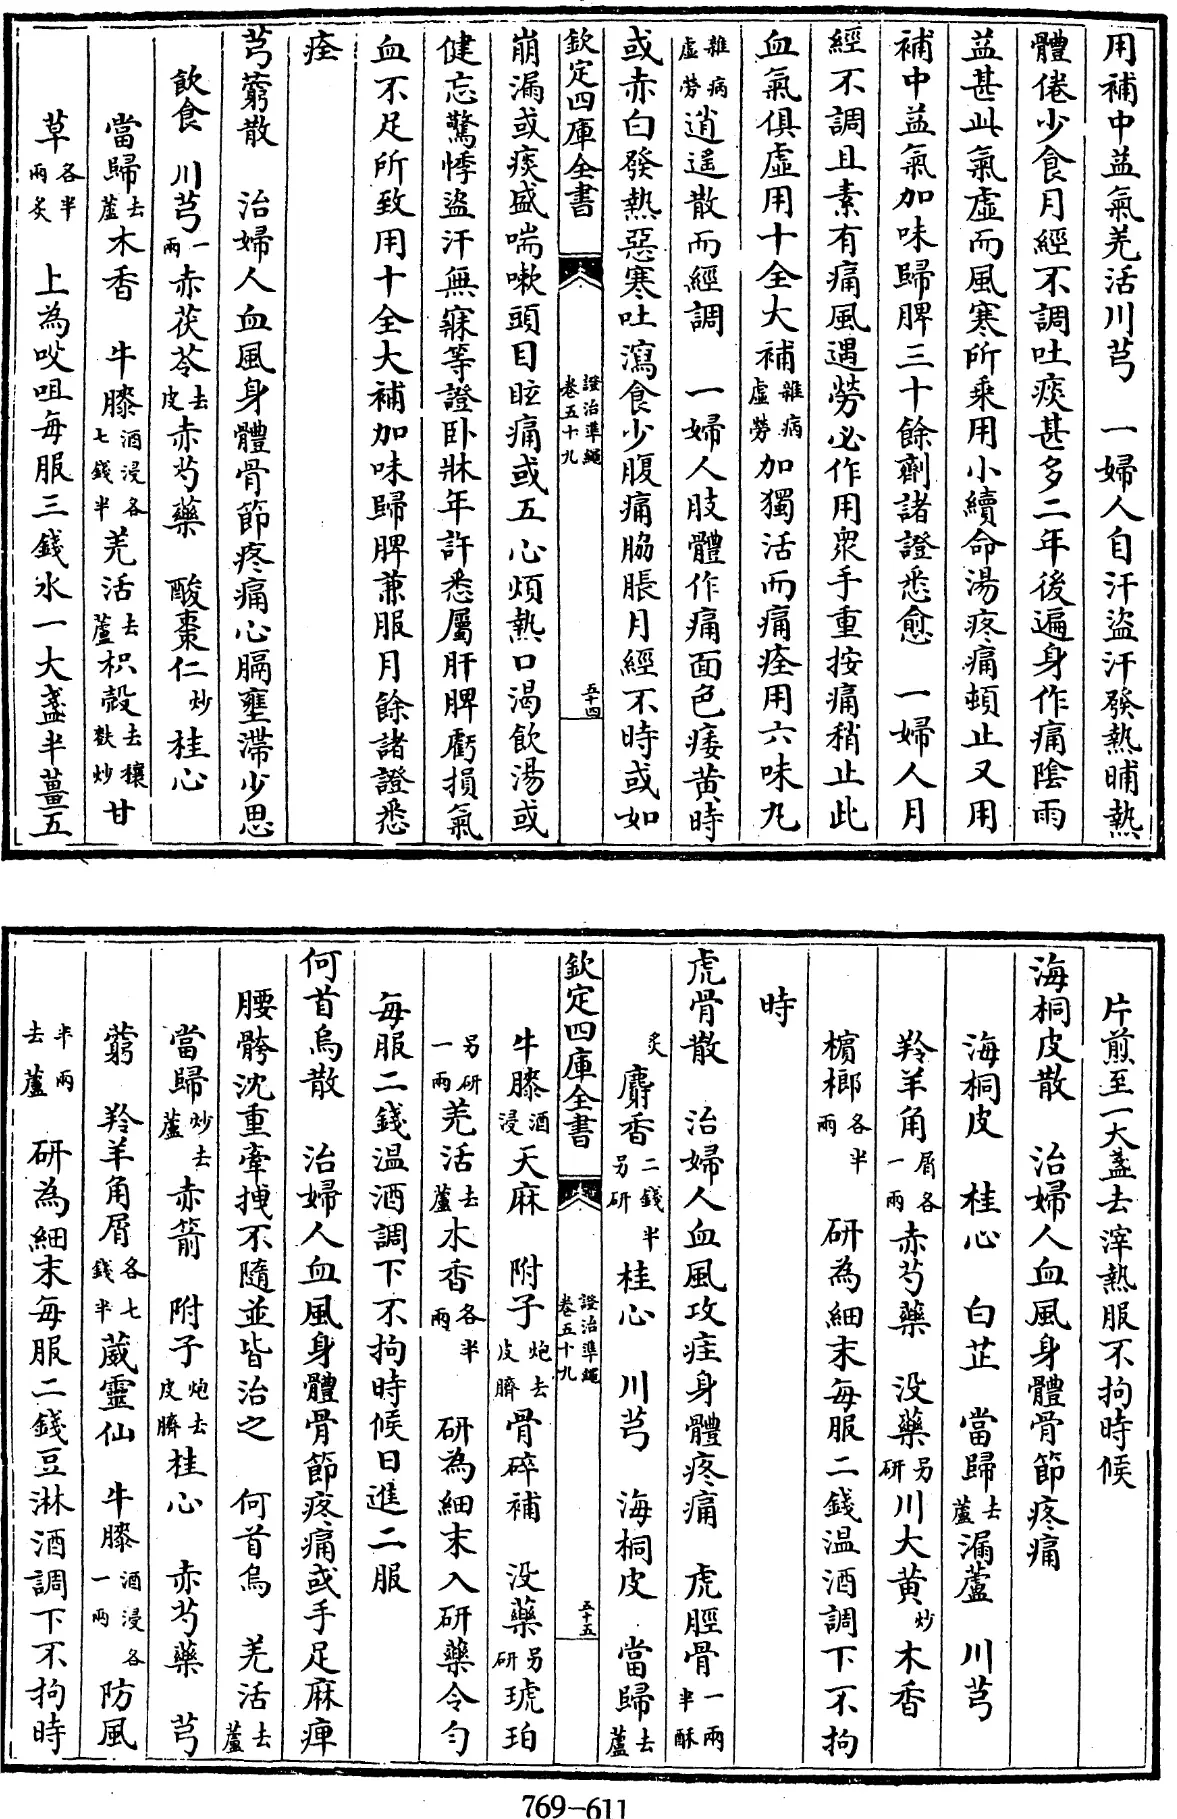 用補中益氣羌活川芎　一婦人自汗盜汗發熱晡熱
體倦少食月經不調吐痰甚多二年後遍身作痛陰雨
益甚此氣虛而風寒所乘用小續命湯疼痛頓止又用
補中益氣加味歸脾三十餘劑諸證悉愈　一婦人月
經不調且素有痛風遇勞必作用衆手重按痛稍止此
血氣俱虛用十全大補雜病虛勞加獨活而痛痊用六味丸
雜病虛勞逍遥散而經調　一婦人肢體作痛面色痿黄時
或赤白發熱惡寒吐瀉食少腹痛脇脹月經不時或如
欽定四庫全書　證治準繩卷五十九　五十四
崩漏或痰盛喘嗽頭目眩痛或五心煩熱口渴飲湯或
健忘驚悸盜汗無寐等證卧牀年許悉屬肝脾虧損氣
血不足所致用十全大補加味歸脾兼服月餘諸證悉
痊
芎藭散　治婦人血風身體骨節疼痛心膈壅滯少思
飲食　川芎一兩赤茯苓去皮赤芍藥　酸棗仁炒桂心
當歸去蘆木香　牛膝酒浸各七錢半羌活去蘆枳殼去穰麩炒甘
草各半兩炙　上為㕮咀每服三錢水一大盞半薑五
片煎至一大盞去滓熱服不拘時候
海桐皮散　治婦人血風身體骨節疼痛
海桐皮　桂心　白芷　當歸去蘆漏蘆　川芎
羚羊角屑各一兩赤芍藥　没藥另研川大黄炒木香
檳榔各半兩　研為細末每服二錢温酒調下不拘
時
虎骨散　治婦人血風攻疰身體疼痛　虎脛骨一兩半酥
炙　麝香二錢半另研桂心　川芎　海桐皮　當歸去蘆
欽定四庫全書　證治準繩卷五十九　五十五
牛膝酒浸天麻　附子炮去皮臍骨碎補　没藥另研琥珀
另研一兩羌活去蘆木香各半兩　研為細末入研藥令匀
每服二錢温酒調下不拘時候日進二服
何首烏散　治婦人血風身體骨節疼痛或手足麻痺
腰胯沈重牽拽不隨並皆治之　何首烏　羌活去蘆
當歸炒去蘆赤箭　附子炮去皮臍桂心　赤芍藥　芎
藭　羚羊角屑各七錢半葳靈仙　牛膝酒浸各一兩防風
半兩去蘆　研為細末每服二錢豆淋酒調下不拘時
769-611